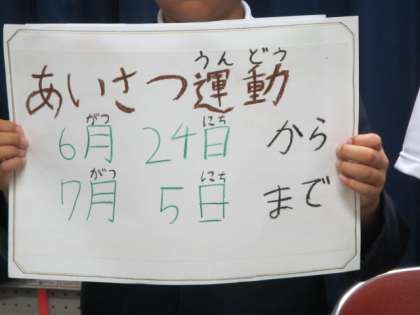 あいさつ運動
うんどう
6月24日から
がつ にち
7月5日まで
がつ にち